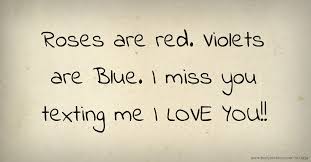 Roses are red. Violets
are Blue. I miss you
texting me I LOVE YOU!!